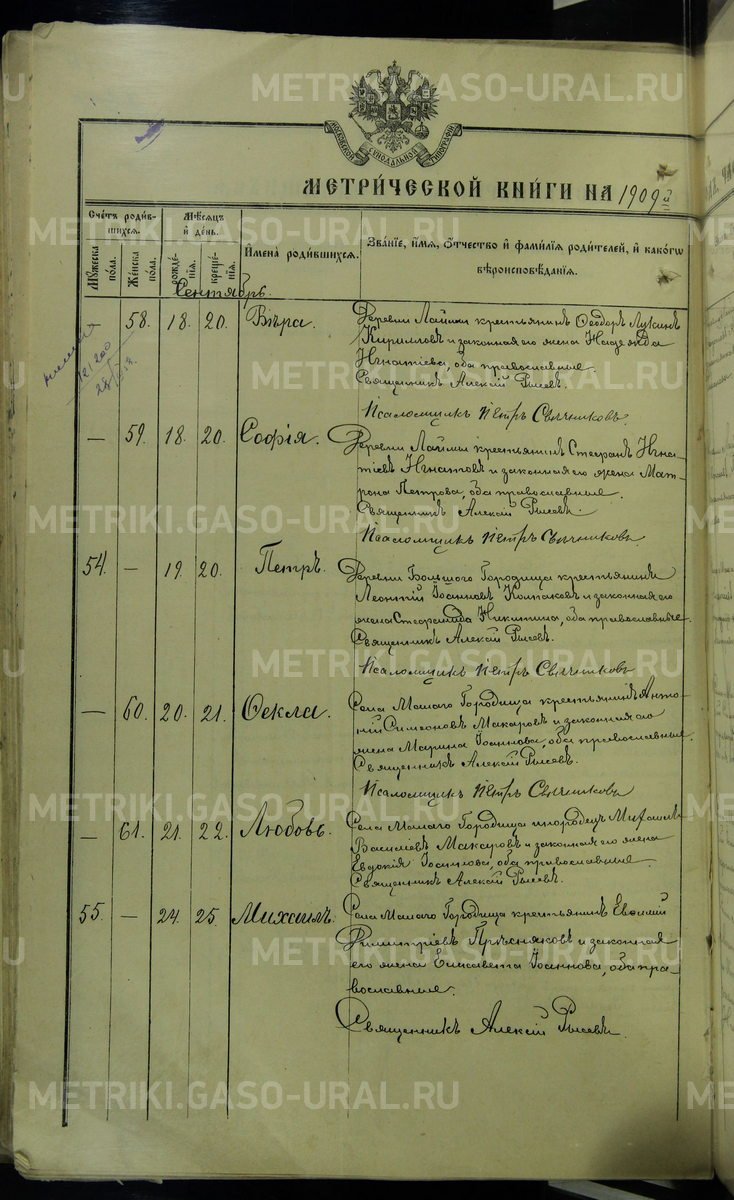 МОСКОВСКОЙ СѴНОДАЛЬНОЙ ТИПОГРАФІИ
МЕТРИ́ЧЕСКОЙ КНИ́ГИ НА 1909й
Сче́тъ роди́в-
шихся.
Мѣ́сяцъ
и҆ де́нь.
И҆мена̀ роди́вшихся.
Зва́нїе, и҆́мя, ѻ҆́тчество и҆ фами́лїя роди́телей, и҆ како́гѡ
вѣроисповѣ́данїя.
Мꙋ́жеска по́ла.
Же́нска по́ла.
рожде́нїя.
креще́нїя.
Сентябрь.
— 58. 18. 20. Вѣра. Деревни Лаймы крестьянинъ Ѳеодоръ Лукинъ
Кирилловъ и законная его жена Надежда
Игнатіева, оба православные.
Священникъ Алексій
Псаломщикъ Петръ Свѣчниковъ
— 59. 18. 20. Софія. Деревни Лаймы крестьянинъ Стефанъ Игна-
тіевъ Игнатовъ и законная его жена Мат-
рона Петрова, оба православные.
Священникъ Алексій
Псаломщикъ Петръ Свѣчниковъ
54. — 19. 20. Петръ. Деревни Большого Городища крестьянинъ
Леонтій Іоанновъ Колпаковъ и законная его
жена Стефанида Никитина, оба православные.
Священникъ Алексій
Псаломщикъ Петръ Свѣчниковъ
— 60. 20. 21. Ѳекла. Села Малаго Городища крестьянинъ Анто-
ній Симеоновъ Макаровъ и законная его
жена Марина Іоаннова, оба православные.
Священникъ Алексій
Псаломщикъ Петръ Свѣчниковъ
— 61. 21. 22. Любовь. Села Малаго Городища инородецъ Михаилъ
Васильевъ Макаровъ и законная его жена
Евдокія Іоаннова, оба православные.
Священникъ Алексій
55. — 24. 25. Михаилъ. Села Малаго Городища крестьянинъ Евѳимій
Димитріевъ Прѣсняковъ и законная
его жена Елисавета Іоаннова, оба пра-
вославные.
Священникъ Алексій
METRIKI.GASO-URAL.RU